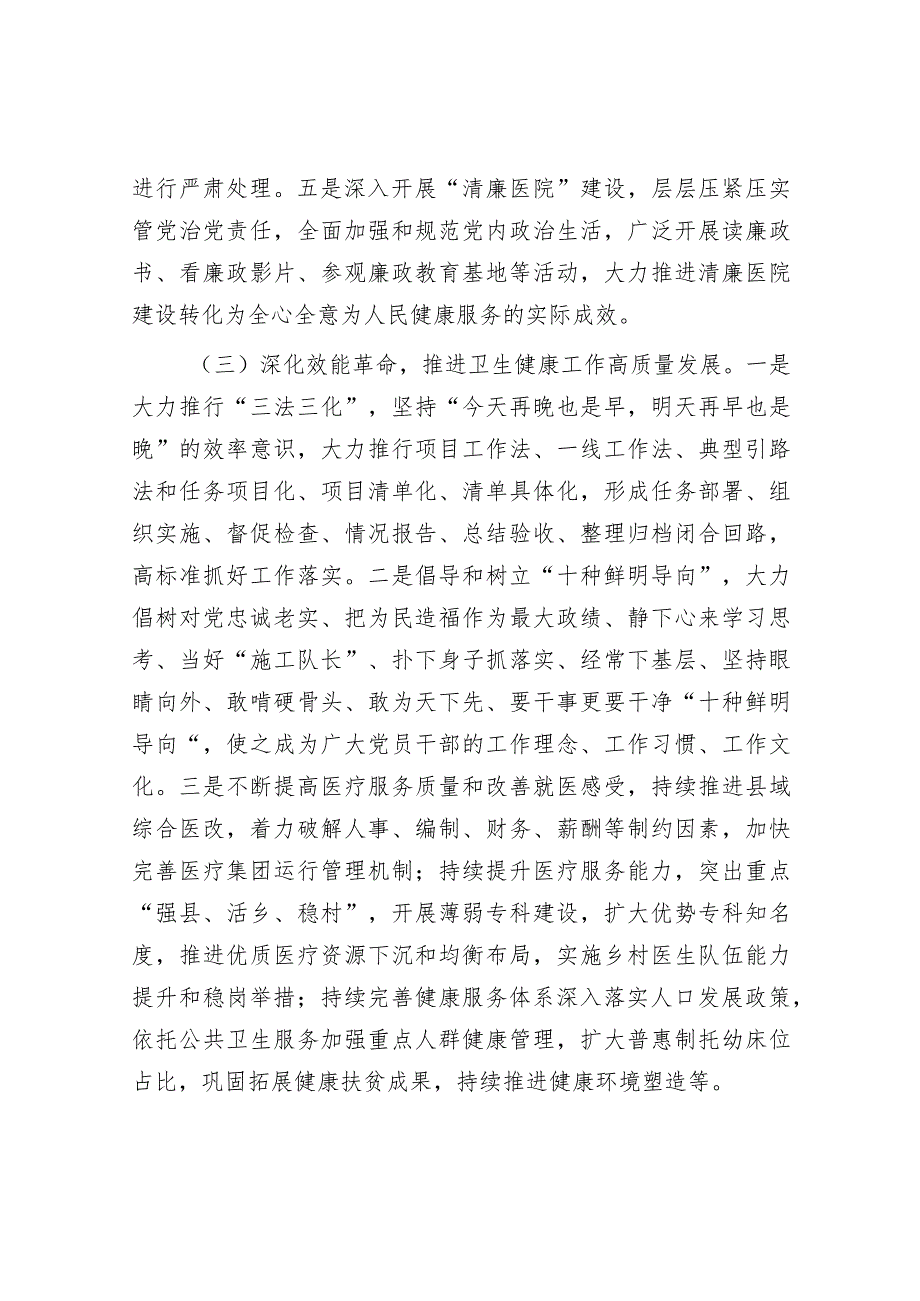 进行严肃处理。五是深入开展“清廉医院”建设，层层压紧压实
管党治党责任，全面加强和规范党内政治生活，广泛开展读廉政
书、看廉政影片、参观廉政教育基地等活动，大力推进清廉医院
建设转化为全心全意为人民健康服务的实际成效。
（三）深化效能革命，推进卫生健康工作高质量发展。一是
大力推行“三法三化”，坚持“今天再晚也是早，明天再早也是
晚”的效率意识，大力推行项目工作法、一线工作法、典型引路
法和任务项目化、项目清单化、清单具体化，形成任务部署、组
织实施、督促检查、情况报告、总结验收、整理归档闭合回路，
高标准抓好工作落实。二是倡导和树立“十种鲜明导向”，大力
倡树对党忠诚老实、把为民造福作为最大政绩、静下心来学习思
考、当好“施工队长”、扑下身子抓落实、经常下基层、坚持眼
睛向外、敢啃硬骨头、敢为天下先、要干事更要干净“十种鲜明
导向“，使之成为广大党员干部的工作理念、工作习惯、工作文
化。三是不断提高医疗服务质量和改善就医感受，持续推进县域
综合医改，着力破解人事、编制、财务、薪酬等制约因素，加快
完善医疗集团运行管理机制；持续提升医疗服务能力，突出重点
“强县、活乡、稳村”，开展薄弱专科建设，扩大优势专科知名
度，推进优质医疗资源下沉和均衡布局，实施乡村医生队伍能力
提升和稳岗举措；持续完善健康服务体系深入落实人口发展政策，
依托公共卫生服务加强重点人群健康管理，扩大普惠制托幼床位
占比，巩固拓展健康扶贫成果，持续推进健康环境塑造等。